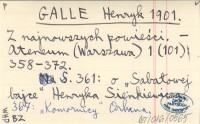 GALLE Henryk 1901.
Z najnowszych powieści. —
Ateneum (Warszawa) 1 (101):
358-372.
Na S. 361: o „Sabałowej
bajce" Henryka Sienkiewicza
367: „Komornicy" Orkana.
BZ